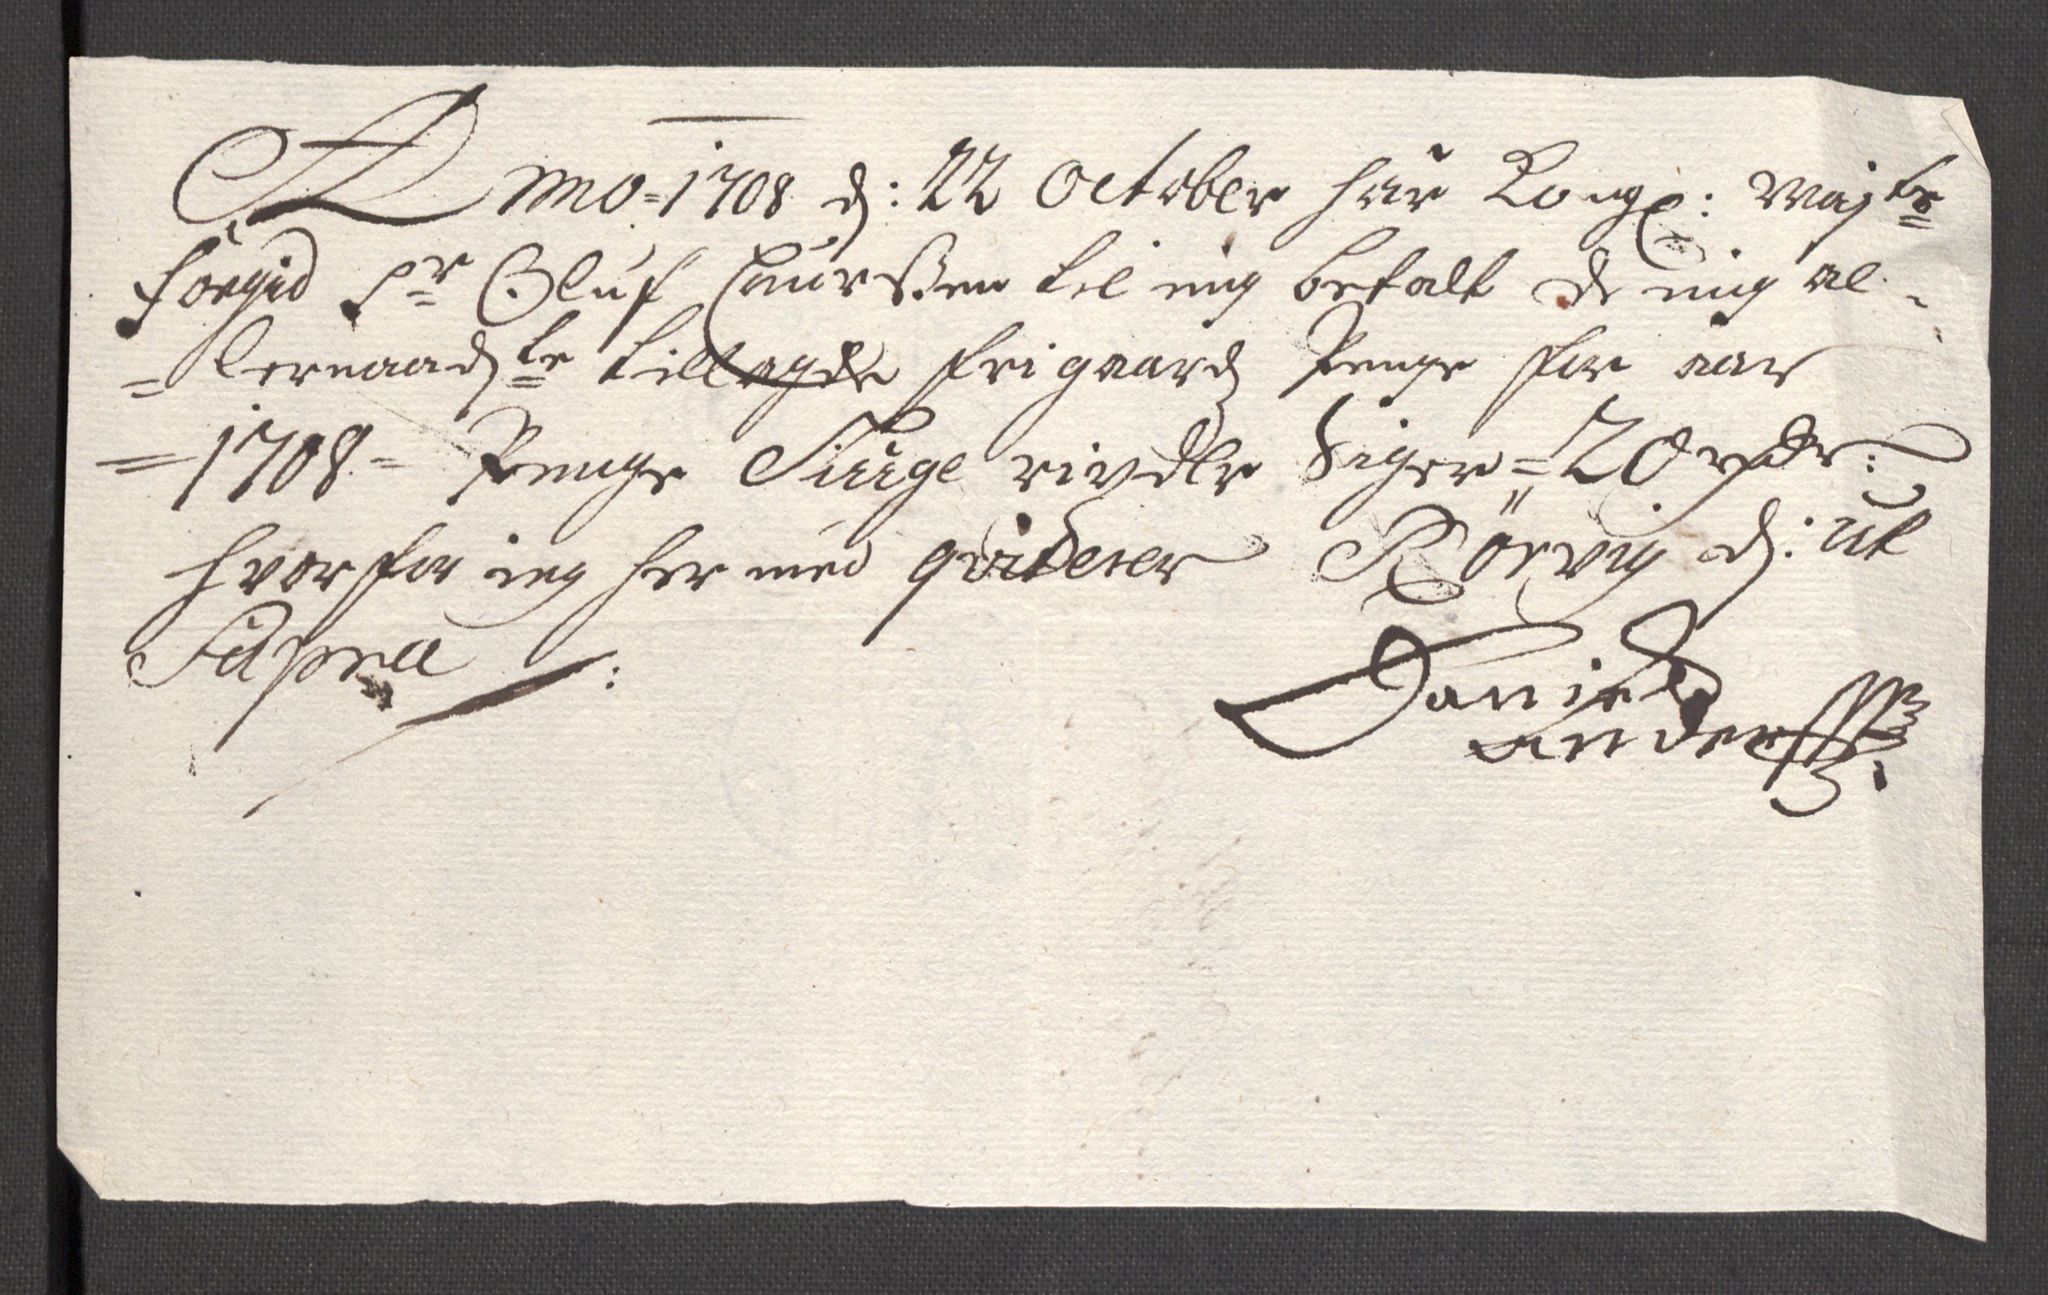 Anno = 1708 d: 22 October haur Kongl: Maj:ts
Foeged Sr Oluf Laurssen til mig betalt de mig al-
= lernaadste tillagde frigaard Penge for aar
= 1708 - Penge Tiuge rixdlr siger = 20 rdr:
hvor for ieg her med qviterer Rörvig d: ut
Supra :
Daniel
Anderss: